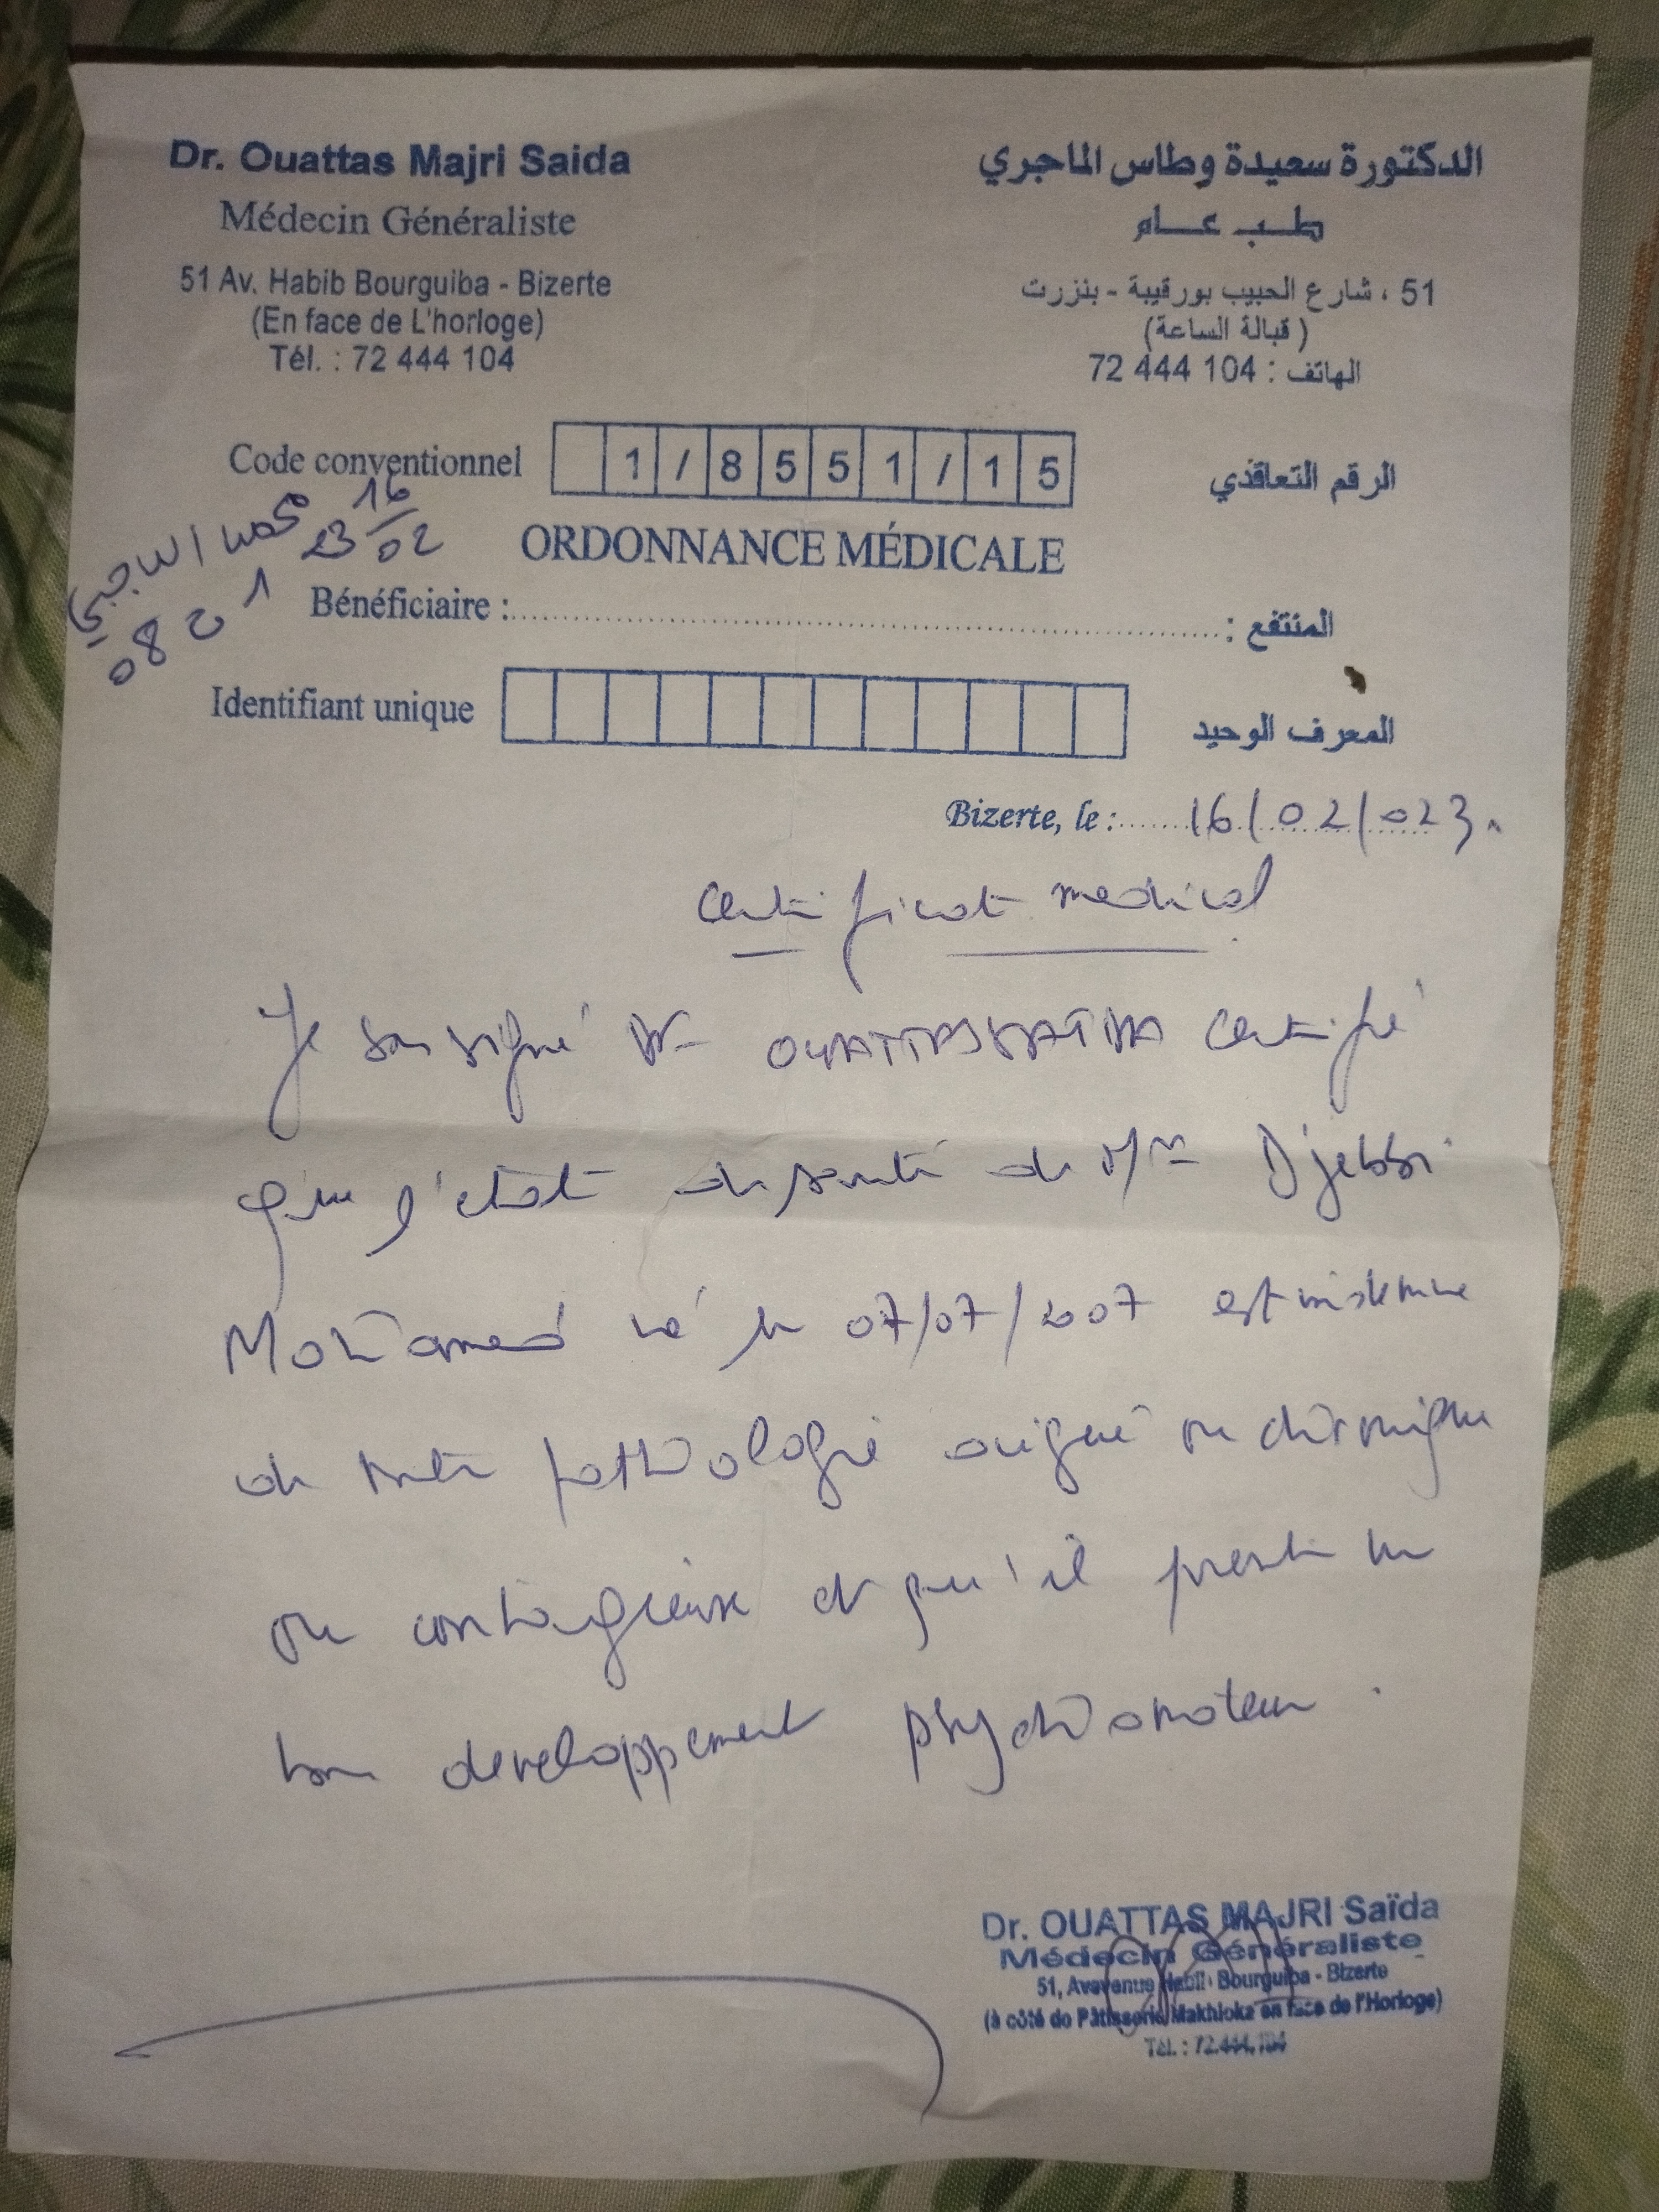 Dr. Ouattas Majri Saida
Médecin Généraliste
51 Av. Habib Bourguiba - Bizerte
(En face de L'horloge)
Tél. : 72 444 104
الدكتورة سعيدة وطاس الماجري
طب عام
51 ، شارع الحبيب بورقيبة - بنزرت
(قبالة الساعة)
الهاتف : 104 444 72
Code conventionnel 1/8551/15 الرقم التعاقدي
16
23 02
ORDONNANCE MÉDICALE
Bénéficiaire : المنتفع :
Identifiant unique المعرف الوحيد
Bizerte, le : 16/02/023.
Certificat medical
Je soussigné Dr OUATTAS SAIDA certifie
que l'etat de santé de Mr Djebbi
Mohamed né le 07/07/2007 est indemne
de toute pathologie aigue ou chronique
ou contagieuse et qu'il presente un
bon developpement psychomoteur.
Dr. OUATTAS MAJRI Saïda
Médecin Généraliste
51, Avevenue Habib Bourguiba - Bizerte
(à côté de Pâtisserie Makhlouka en face de l'Horloge)
Tél. : 72.444.104